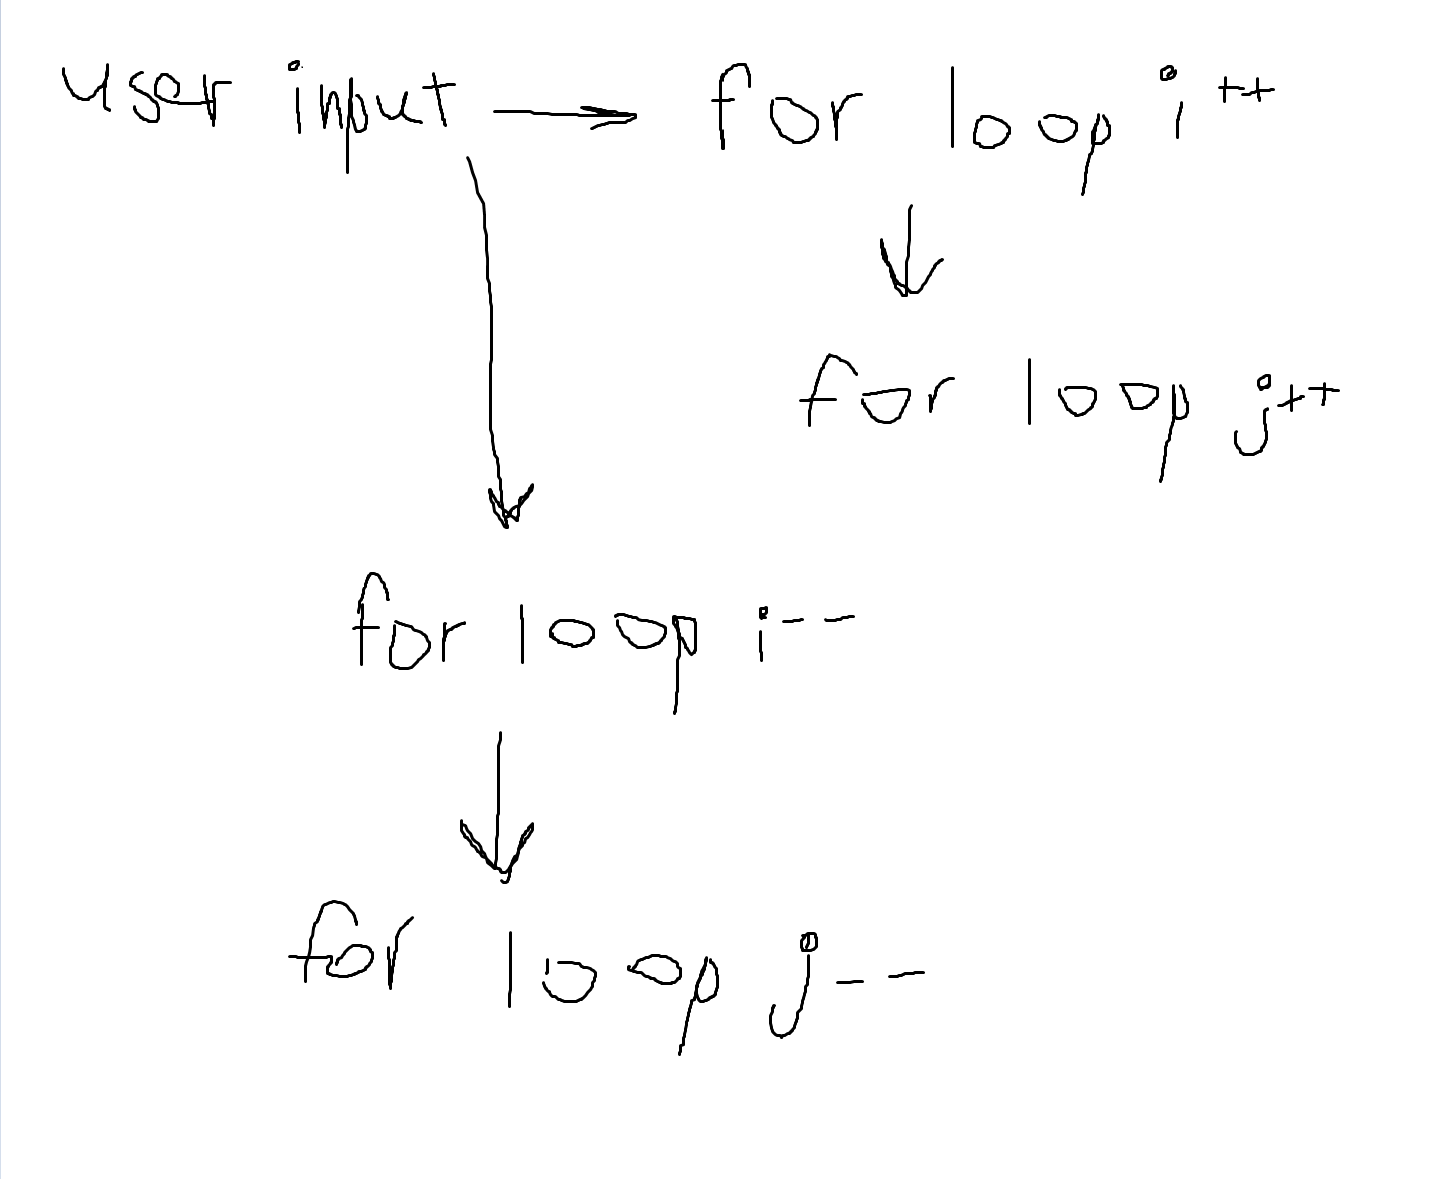 user input → for loop i++
↓
for loop j++
↓
for loop i--
↓
for loop j--